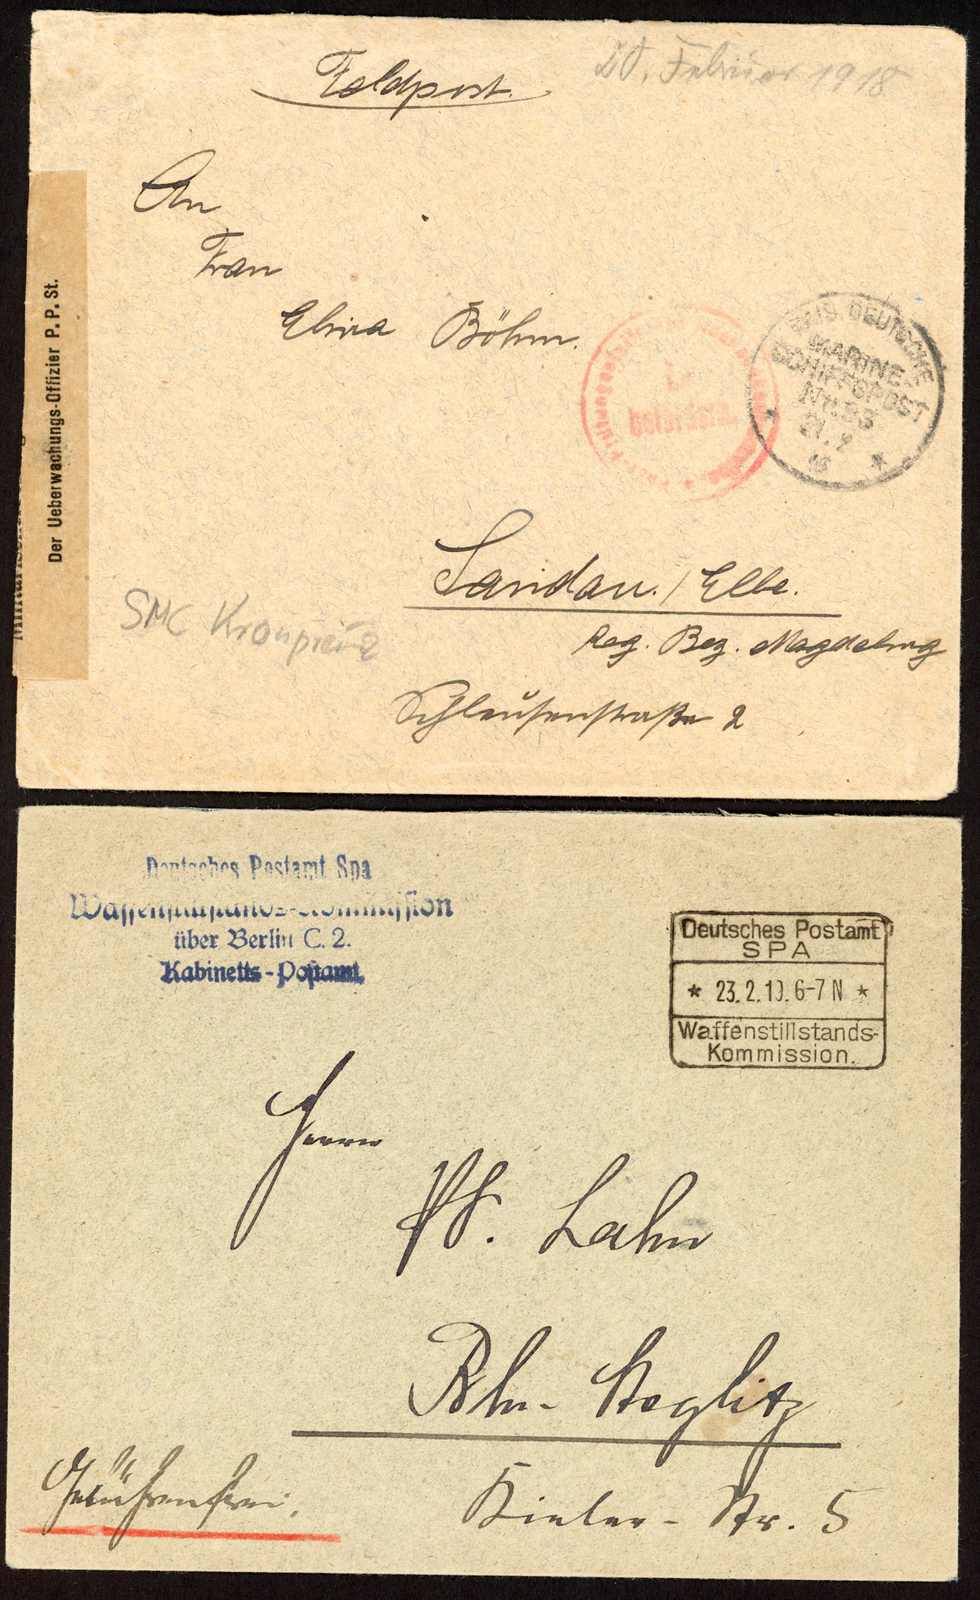 Feldpost.
20. Februar 1918
An
Frau
Elvira Böhm.
befördern.
KAIS. DEUTSCHE
MARINE-
SCHIFFSPOST
Nr. 93
21. 2
18
Der Ueberwachungs-Offizier P. P. St.
Sandau. / Elbe.
Reg. Bez. Magdeburg
Schleusenstraße 2
SMS Kronprinz
Deutsches Postamt Spa
Waffenstillstands-Kommission
über Berlin C. 2.
Kabinetts-Postamt
Deutsches Postamt
SPA
* 23.2.19. 6-7 N *
Waffenstillstands-
Kommission.
Herrn
W. Lahn
Bln-Steglitz
Kieler-Str. 5
Gebührenfrei.